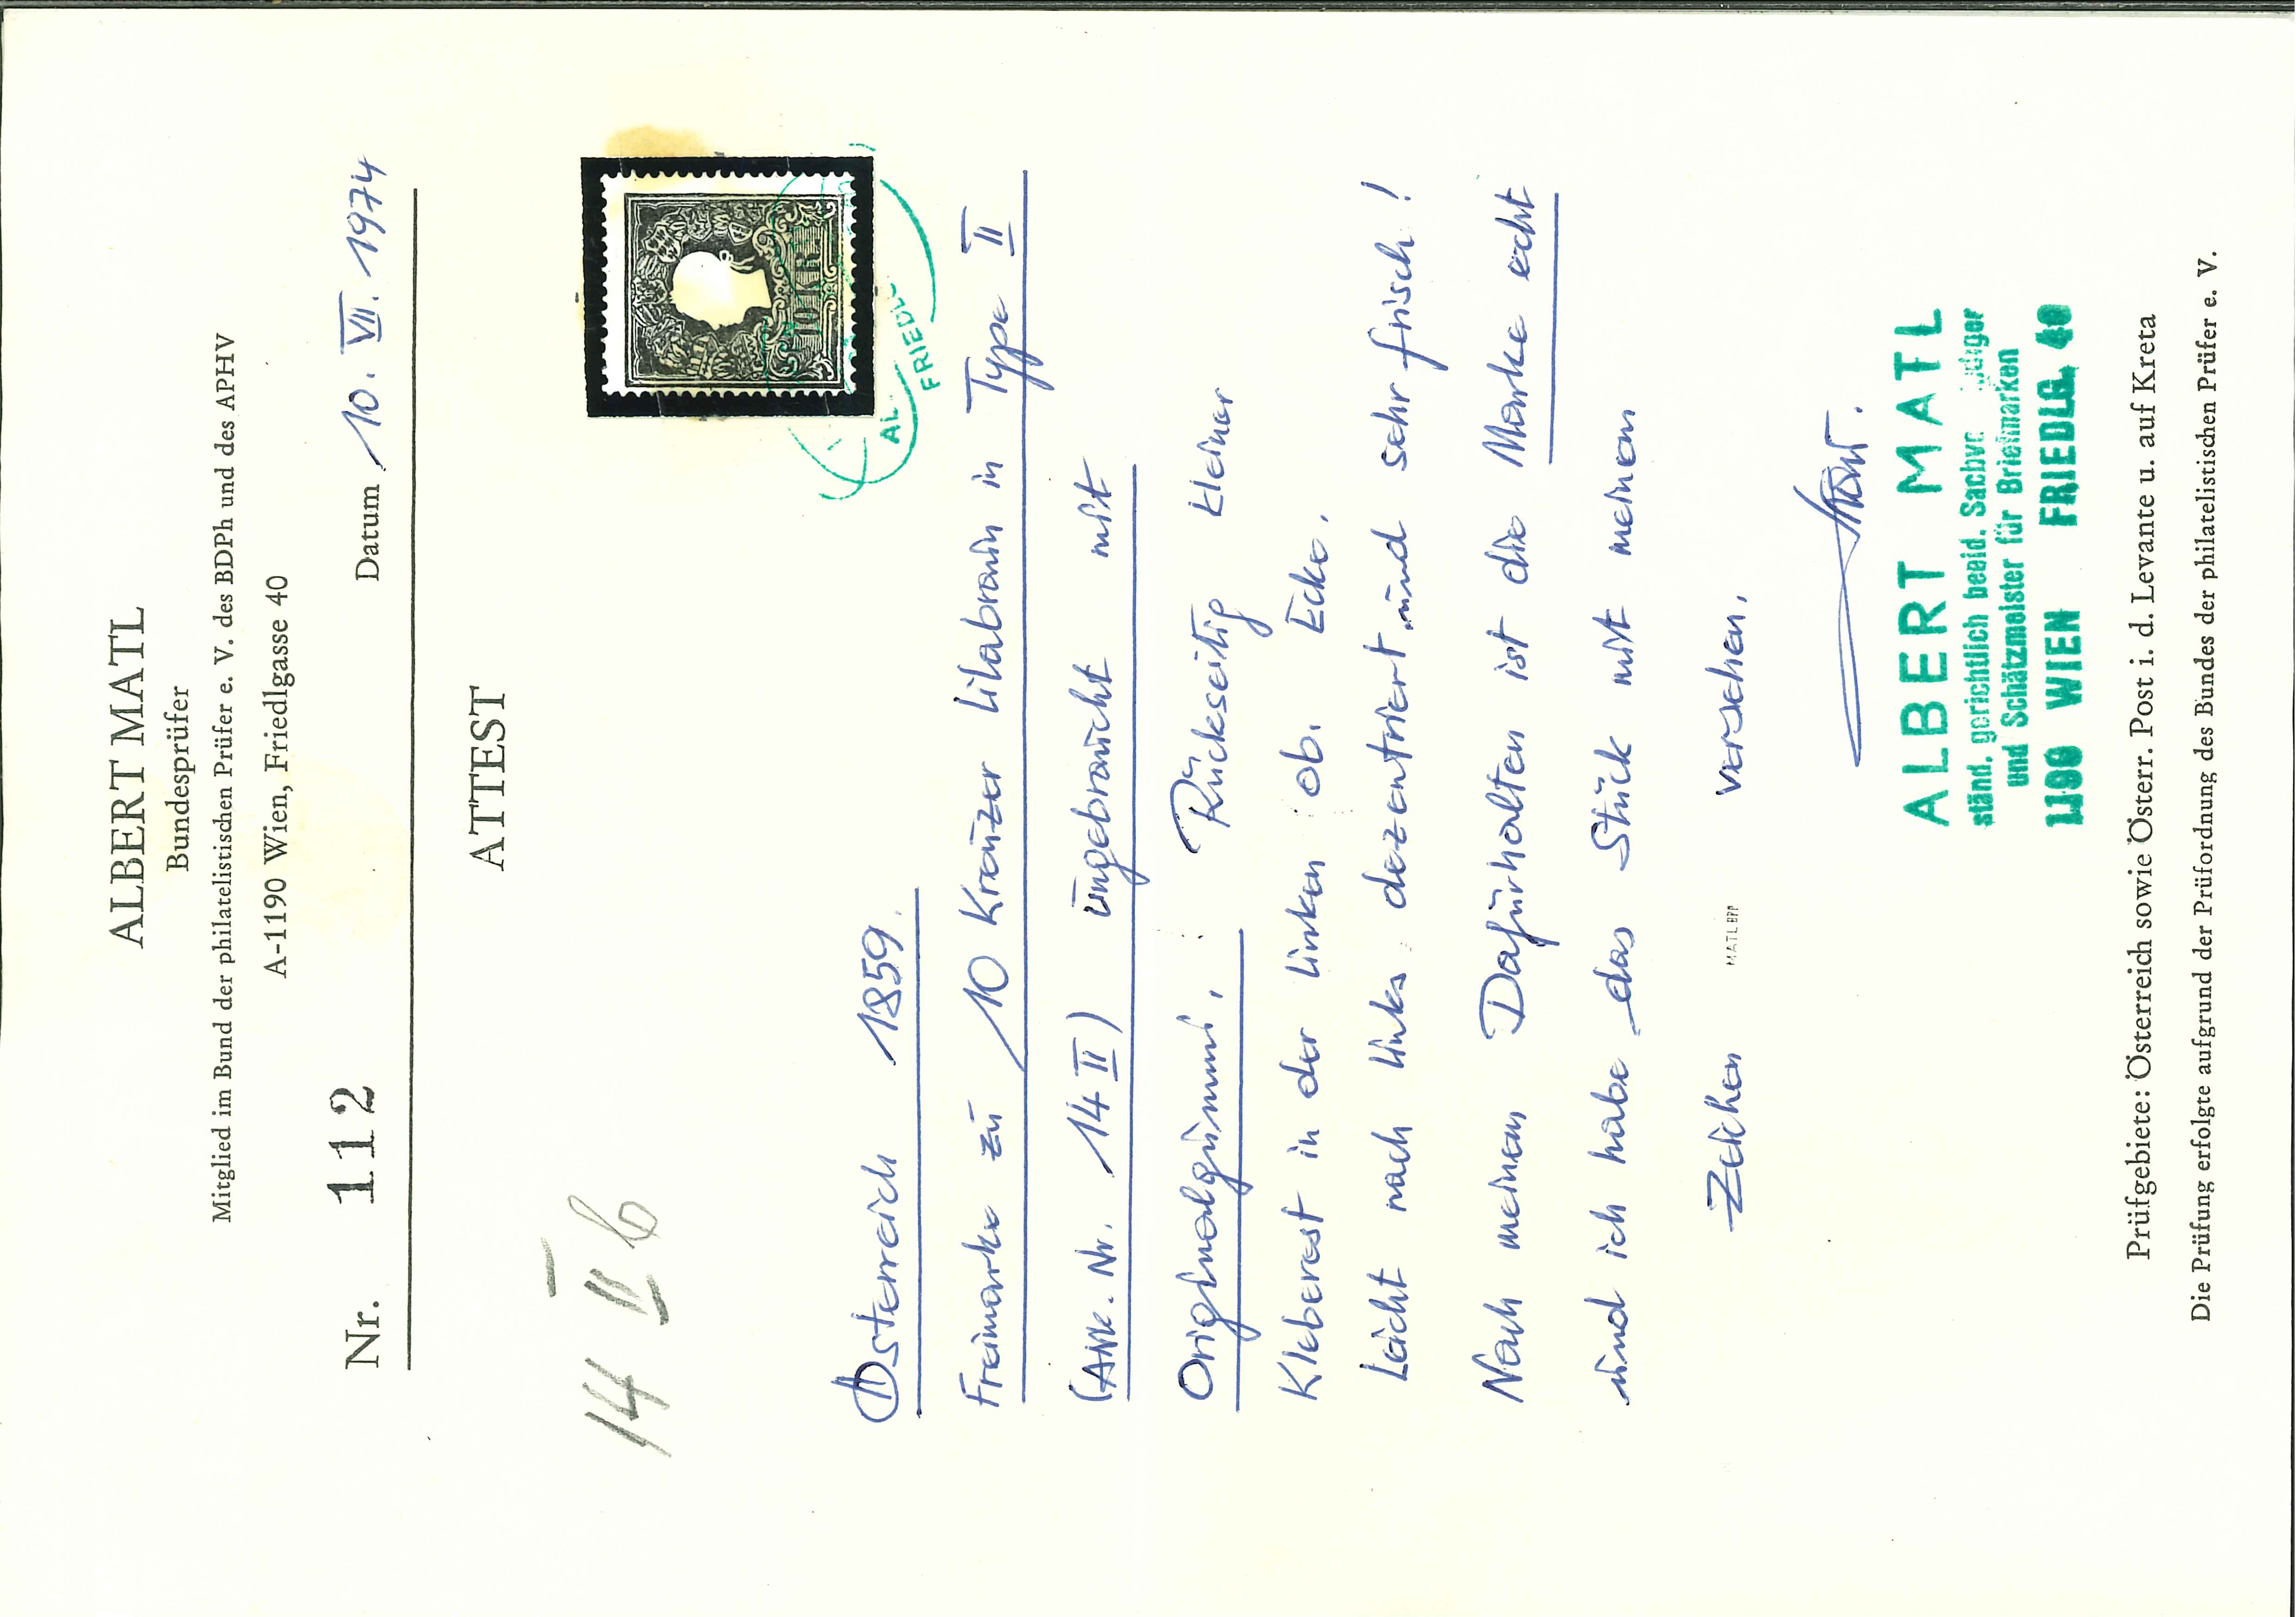 ALBERT MATL
Bundesprüfer
Mitglied im Bund der philatelistischen Prüfer e. V. des BDPh und des APHV
A-1190 Wien, Friedlgasse 40
Nr. 112 Datum 10. VII. 1974
ATTEST
14 II b
10 KR
AL.
FRIEDL
Österreich 1859.
Freimarke zu 10 Kreuzer lilabraun in Type II
(ANK. Nr. 14 II) ungebraucht mit
Originalgummi. Rückseitig kleiner
Kleberest in der linken ob. Ecke.
Leicht nach links dezentriert und sehr frisch!
Nach meinem Dafürhalten ist die Marke echt
und ich habe das Stück mit meinem
Zeichen MATL BPP versehen.
ALBERT MATL
ständ. gerichtlich beeid.
und Schätzmeister für Briefmarken
1190 WIEN FRIEDLG. 40
Prüfgebiete: Österreich sowie Österr. Post i. d. Levante u. auf Kreta
Die Prüfung erfolgte aufgrund der Prüfordnung des Bundes der philatelistischen Prüfer e. V.